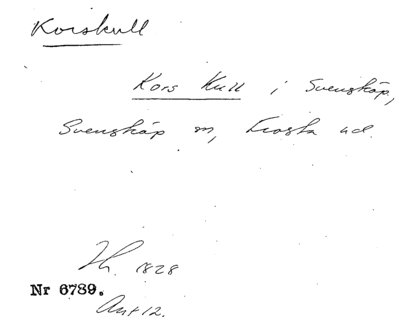 Korskull
Kors Kull i Svenskåp,
Svenskåp sn, Frosta hd.
Th. 1828
Nr 6789.
Ant 12.